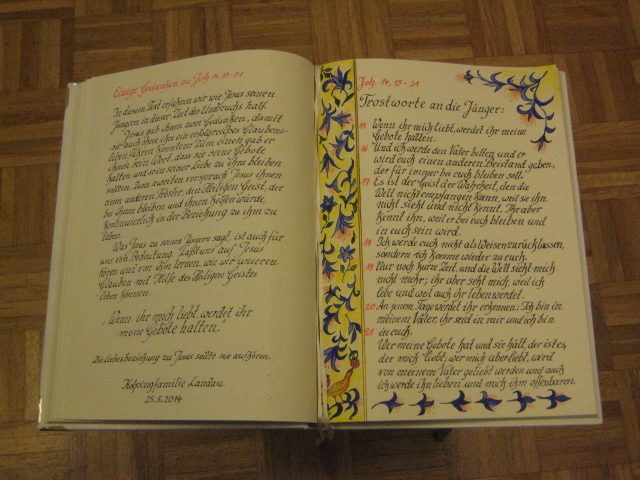 Einige Gedanken zu Joh. 14, 15-21
In diesem Text erfahren wir wie Jesus seinen
Jüngern in dieser Zeit des Umbruchs half.
Jesus gab ihnen zwei Gedanken, damit
sie auch ohne ihn ein erfolgreiches Glaubens-
leben führen konnten: Zum einen gab er
ihnen sein Wort, dass sie seine Gebote
halten und sein in seiner Liebe zu ihm bleiben
sollten. Zum zweiten versprach Jesus ihnen
einen anderen Tröster, den Heiligen Geist, der
bei ihnen bleiben und ihnen helfen würde,
kontinuierlich in der Beziehung zu ihm zu
leben.
Was Jesus zu seinen Jüngern sagt, ist auch für
uns von Bedeutung. Laßt uns auf Jesus
hören und von ihm lernen, wie wir unseren
Glauben mit Hilfe des Heiligen Geistes
leben können.
"Wenn ihr mich liebt, werdet ihr
meine Gebote halten."
Die Liebesbeziehung zu Jesus sollte nie aufhören.
Kolpingfamilie Landau
25.5.2014
Joh. 14, 15-21
Trostworte an die Jünger:
15 Wenn ihr mich liebt, werdet ihr meine
Gebote halten.
16 Und ich werde den Vater bitten und er
wird euch einen anderen Beistand geben,
der für immer bei euch bleiben soll.
17 Es ist der Geist der Wahrheit, den die
Welt nicht empfangen kann, weil sie ihn
nicht sieht und nicht kennt. Ihr aber
kennt ihn, weil er bei euch bleiben und
in euch sein wird.
18 Ich werde euch nicht als Waisen zurücklassen,
sondern ich komme wieder zu euch.
19 Nur noch kurze Zeit, und die Welt sieht mich
nicht mehr; ihr aber seht mich, weil ich
lebe und weil auch ihr leben werdet.
20 An jenem Tage werdet ihr erkennen: Ich bin in
meinem Vater, ihr seid in mir und ich bin
21 in euch.
Wer meine Gebote hat und sie hält, der ist es,
der mich liebt, wer mich aber liebt, wird
von meinem Vater geliebt werden und auch
ich werde ihn lieben und mich ihm offenbaren.